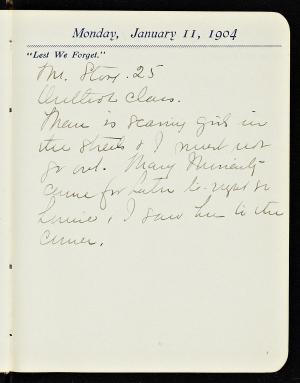 Monday, January 11, 1904
"Lest We Forget."
Mr. Story .25
class.
Man is scaring girls in
the streets & I must not
go out. Mary
came for to-night so
I saw her to the
corner.